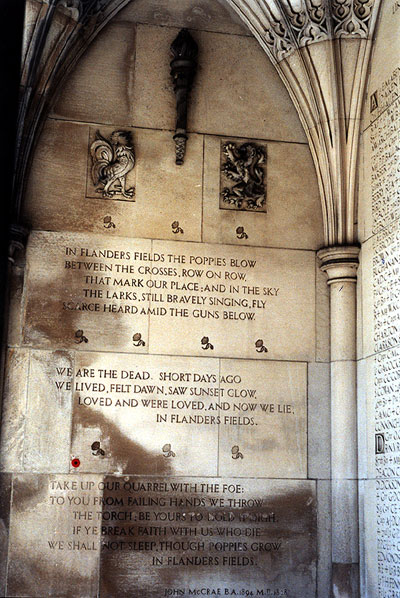 IN FLANDERS FIELDS THE POPPIES BLOW
BETWEEN THE CROSSES, ROW ON ROW,
THAT MARK OUR PLACE; AND IN THE SKY
THE LARKS, STILL BRAVELY SINGING, FLY
SCARCE HEARD AMID THE GUNS BELOW.
WE ARE THE DEAD. SHORT DAYS AGO
WE LIVED, FELT DAWN, SAW SUNSET GLOW,
LOVED AND WERE LOVED, AND NOW WE LIE,
IN FLANDERS FIELDS.
TAKE UP OUR QUARREL WITH THE FOE:
TO YOU FROM FAILING HANDS WE THROW
THE TORCH; BE YOURS TO HOLD IT HIGH.
IF YE BREAK FAITH WITH US WHO DIE
WE SHALL NOT SLEEP, THOUGH POPPIES GROW
IN FLANDERS FIELDS.
JOHN McCRAE B.A. 1894 M.B. 1898